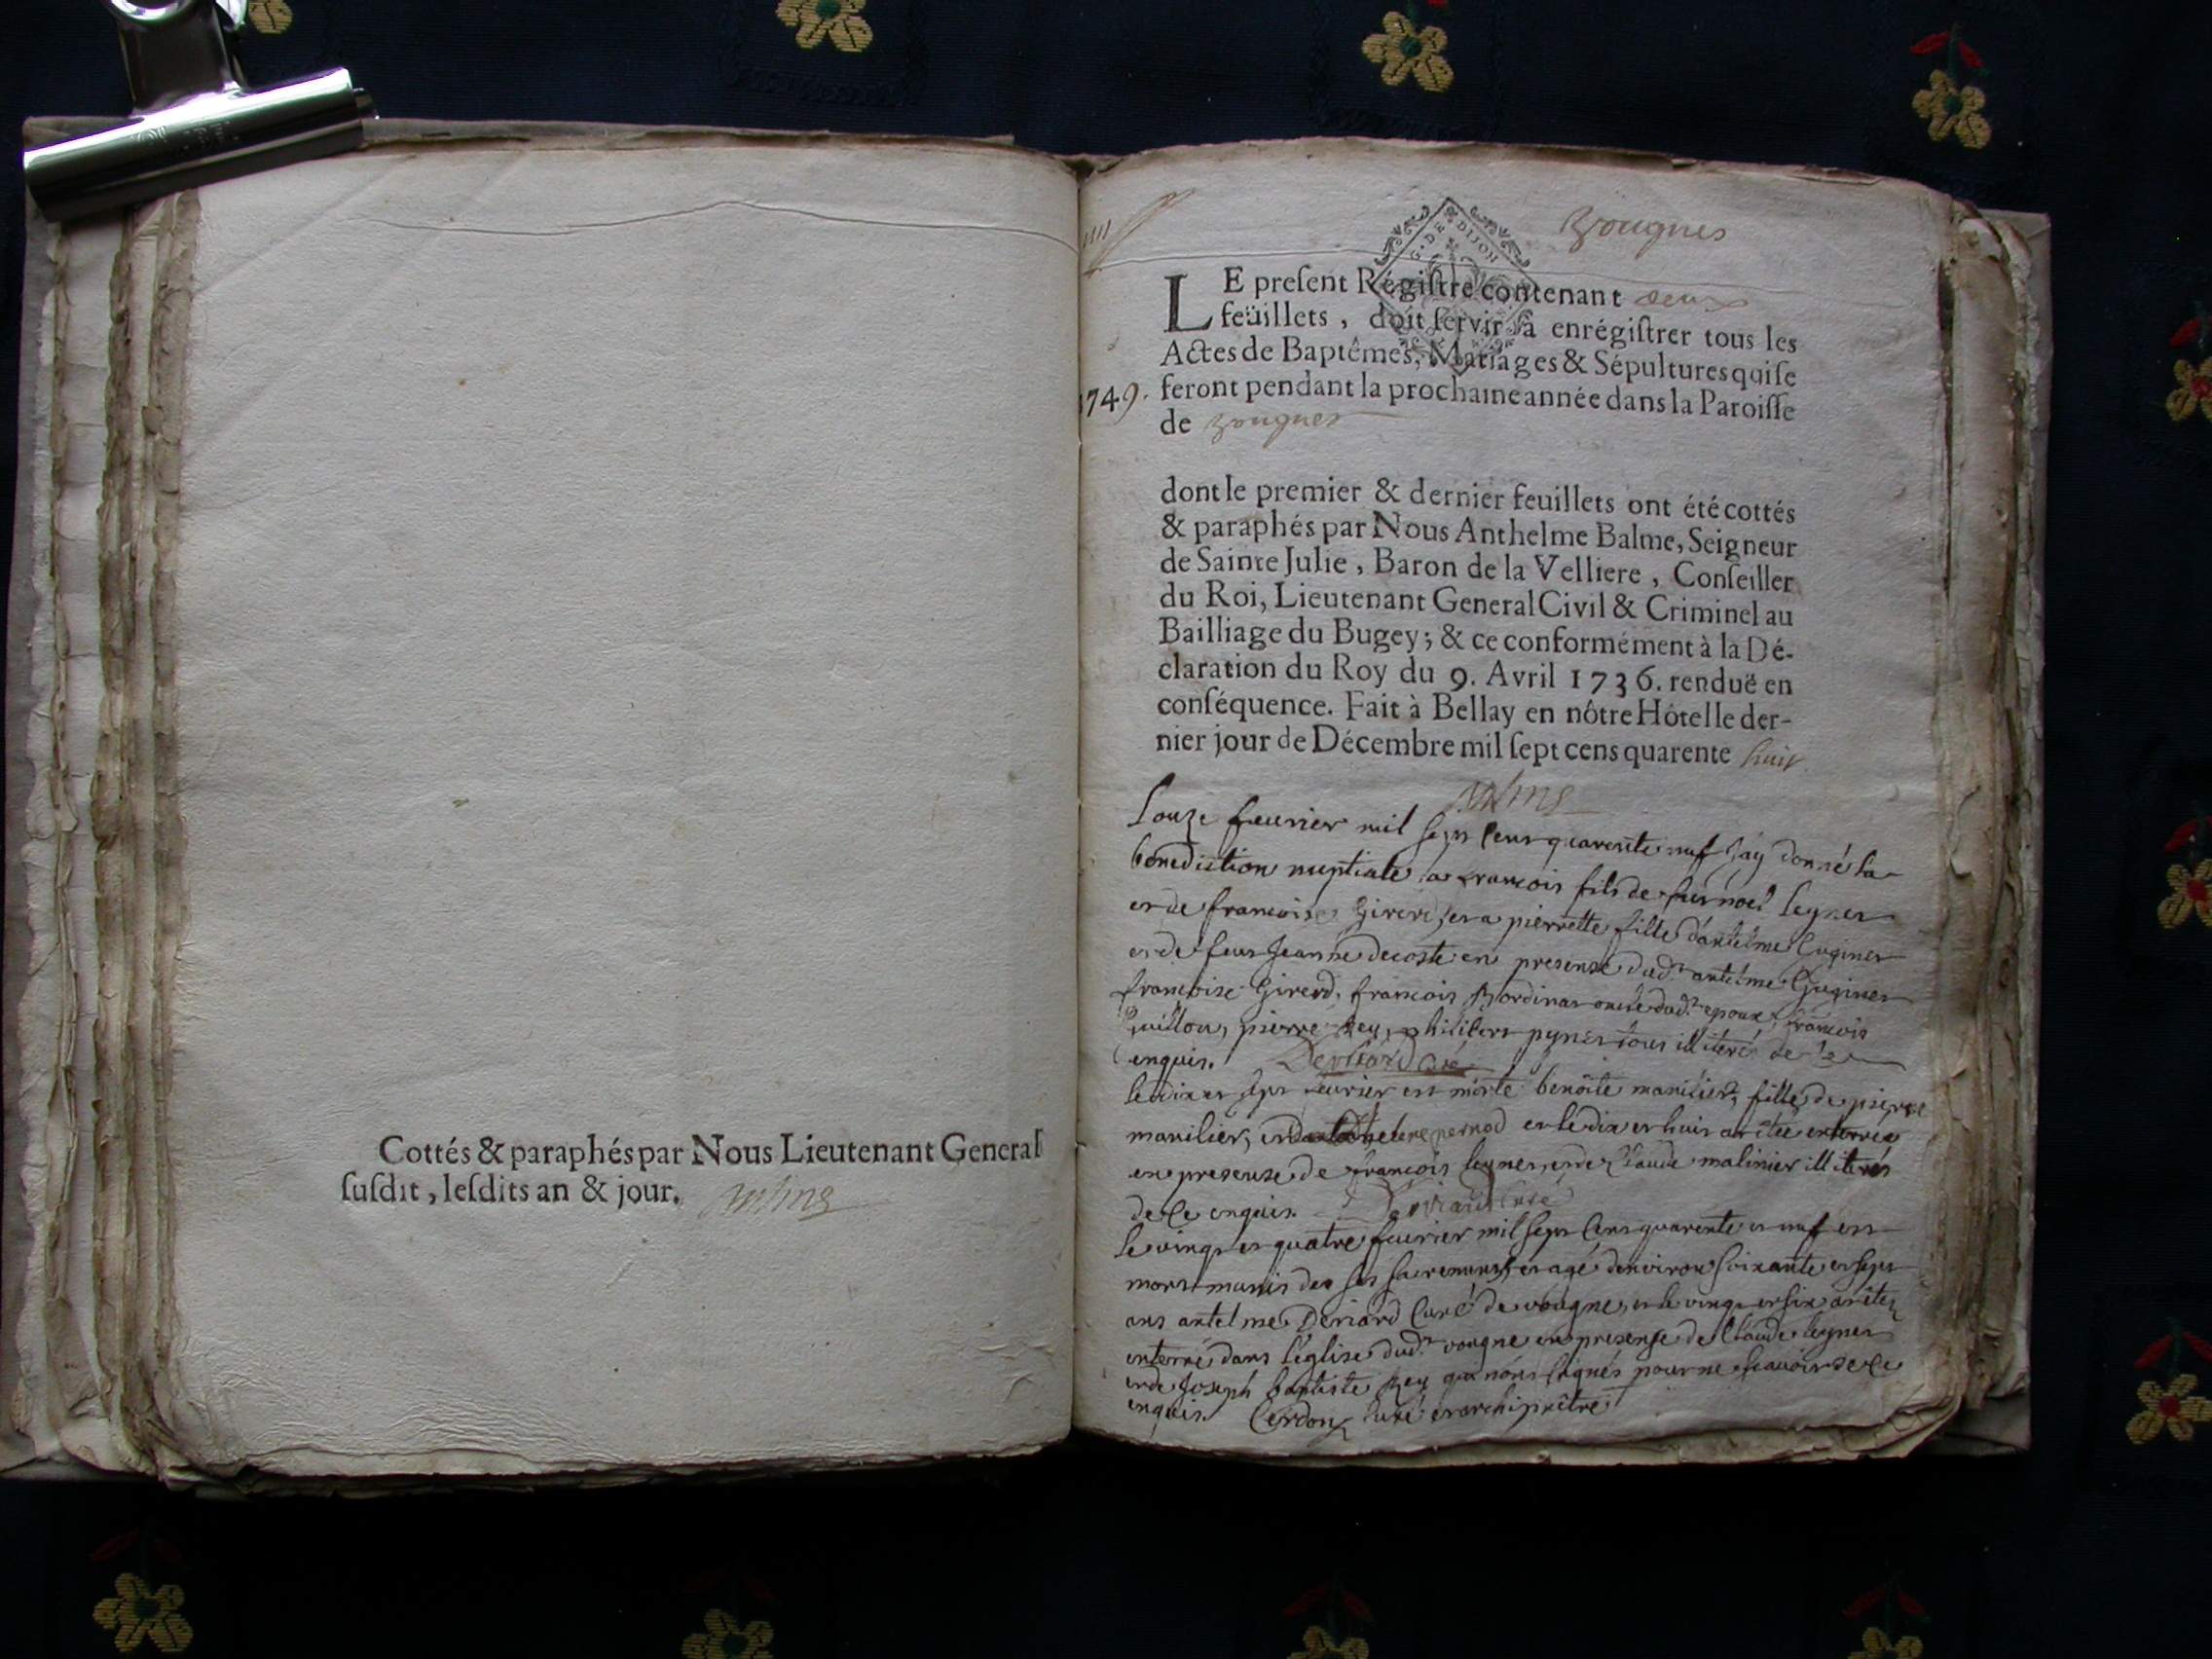 Cottés & paraphés par Nous Lieutenant General
ſuſdit, leſdits an & jour.
G. DE DIJON
LE preſent Régiſtre contenant deux
feüillets, doit ſervir à enrégiſtrer tous les
Actes de Baptêmes, Mariages & Sépultures qui ſe
1749. feront pendant la prochaine année dans la Paroiſſe
de
dont le premier & dernier feuillets ont été cottés
& paraphés par Nous Anthelme Balme, Seigneur
de Sainte Julie, Baron de la Velliere, Conſeiller
du Roi, Lieutenant General Civil & Criminel au
Bailliage du Bugey; & ce conformément à la Dé-
claration du Roy du 9. Avril 1736. renduë en
conſéquence. Fait à Bellay en nôtre Hôtel le der-
nier jour de Décembre mil ſept cens quarente huit
Lonze feurier mil sept cens quarente nuf Jay donné la
benediction nuptiale a francois fils de feu noel
et de francoise Girerd, et a pierrette fille dantelme
et de feue Jeanne decoste en presense dud.t antelme
francoise Girerd, francois oncle dud.t epoux, francois
pierre Rey, philibert tous illiteré de ce
enquis. Deriard Curé
le dix et sept feurier est morte benoite marilier, fille de pierre
marilier, et pernod et le dix et huit a été enterrée
en presense de francois et de Claude malinier illiterés
de Ce enquis. Deriard Curé
le vingt et quatre feurier mil sept Cens quarente et nuf est
mort munis des sacremens, et agé denviron soixante et sept
ans antelme Deriard Curé de vougne, et le vingt et six a été
enterré dans léglise dud.t vougne en presense de Claude
et de Joseph baptiste Rey qui nont signés pour ne scauoir de Ce
enquis. Cerdon Curé et archiprêtre